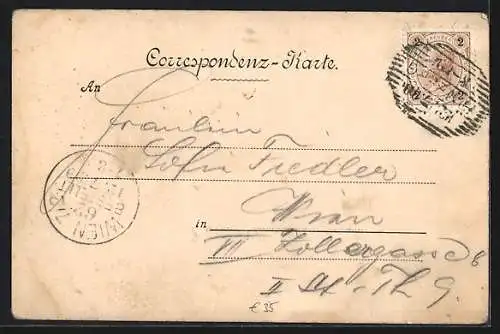 Correspondenz-Karte.
An
Fräulein
Sofie Fiedler
in Wien
VII Zollergasse 6
II St. Th 9.
WIEN 7/
2
€ 35